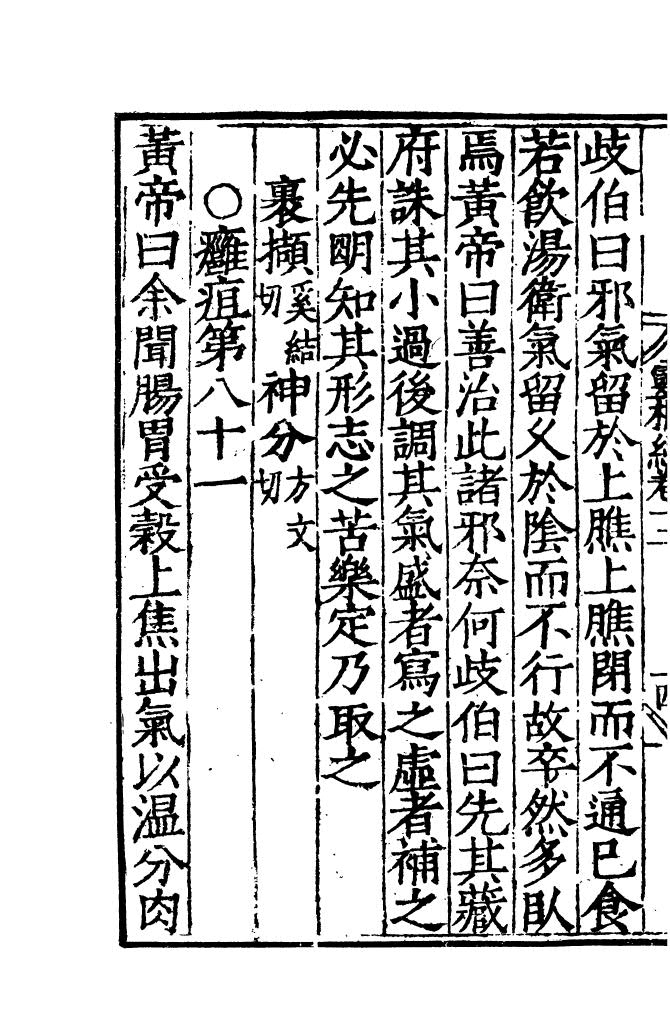 歧伯曰邪氣留於上膲上膲閉而不通已食
若飲湯衛氣留乆於陰而不行故卒然多臥
焉黃帝曰善治此諸邪奈何歧伯曰先其藏
府誅其小過後調其氣盛者寫之虛者補之
必先明知其形志之苦樂定乃取之
襄擷奚結切神分方文切
○癰疽第八十一
黃帝曰余聞腸胃受穀上焦出氣以温分肉